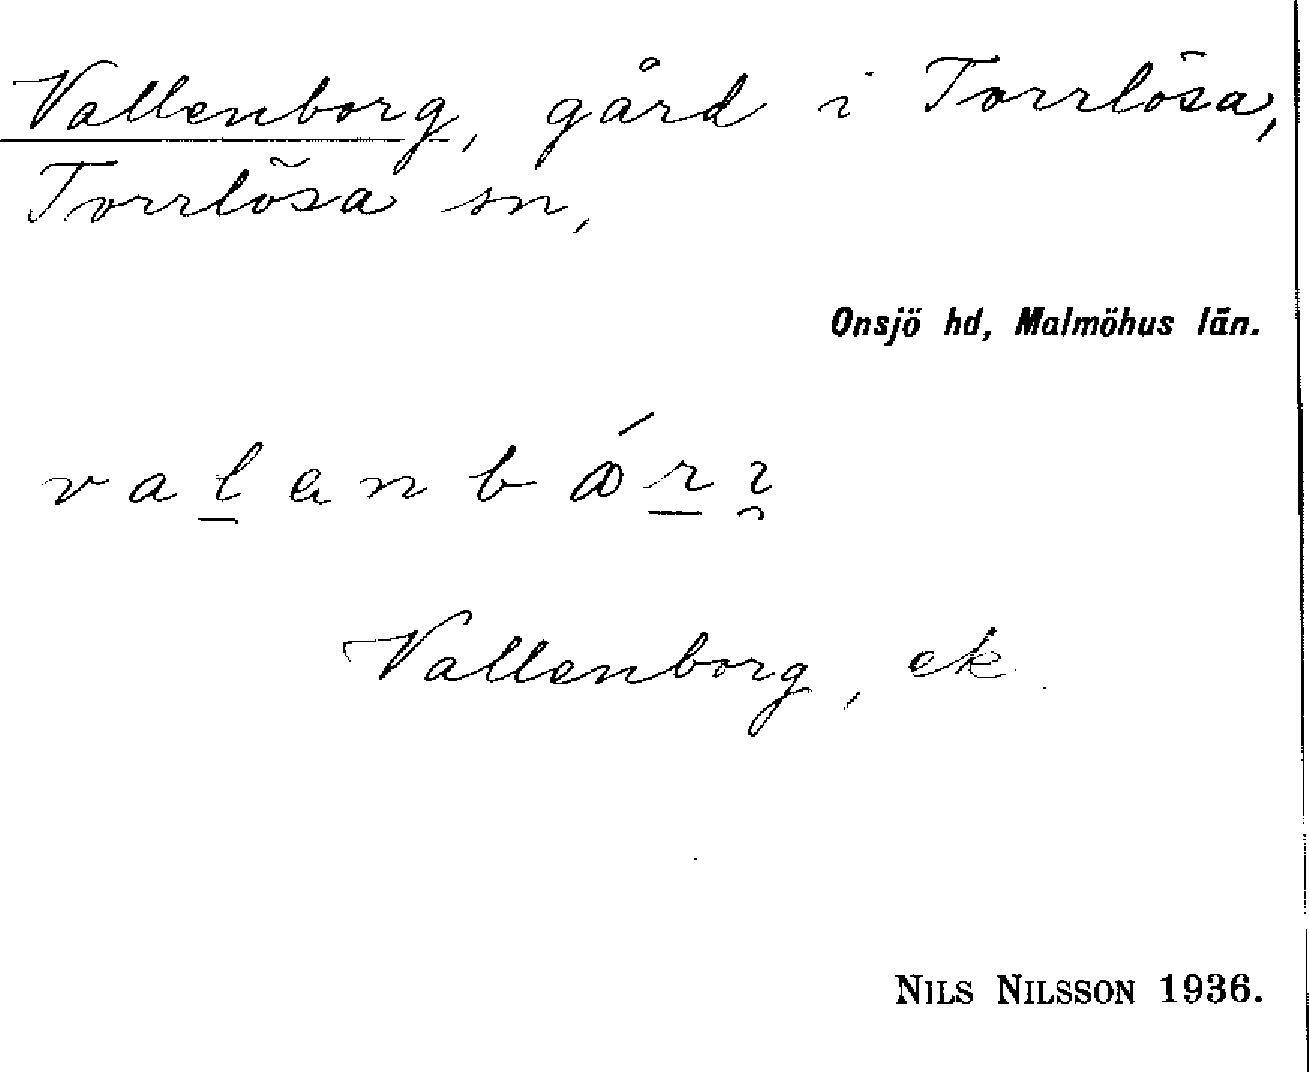 Vallenborg, gård i Torrlösa,
Torrlösa sn,
Onsjö hd, Malmöhus län.
Vallenborg, ek.
NILS NILSSON 1936.